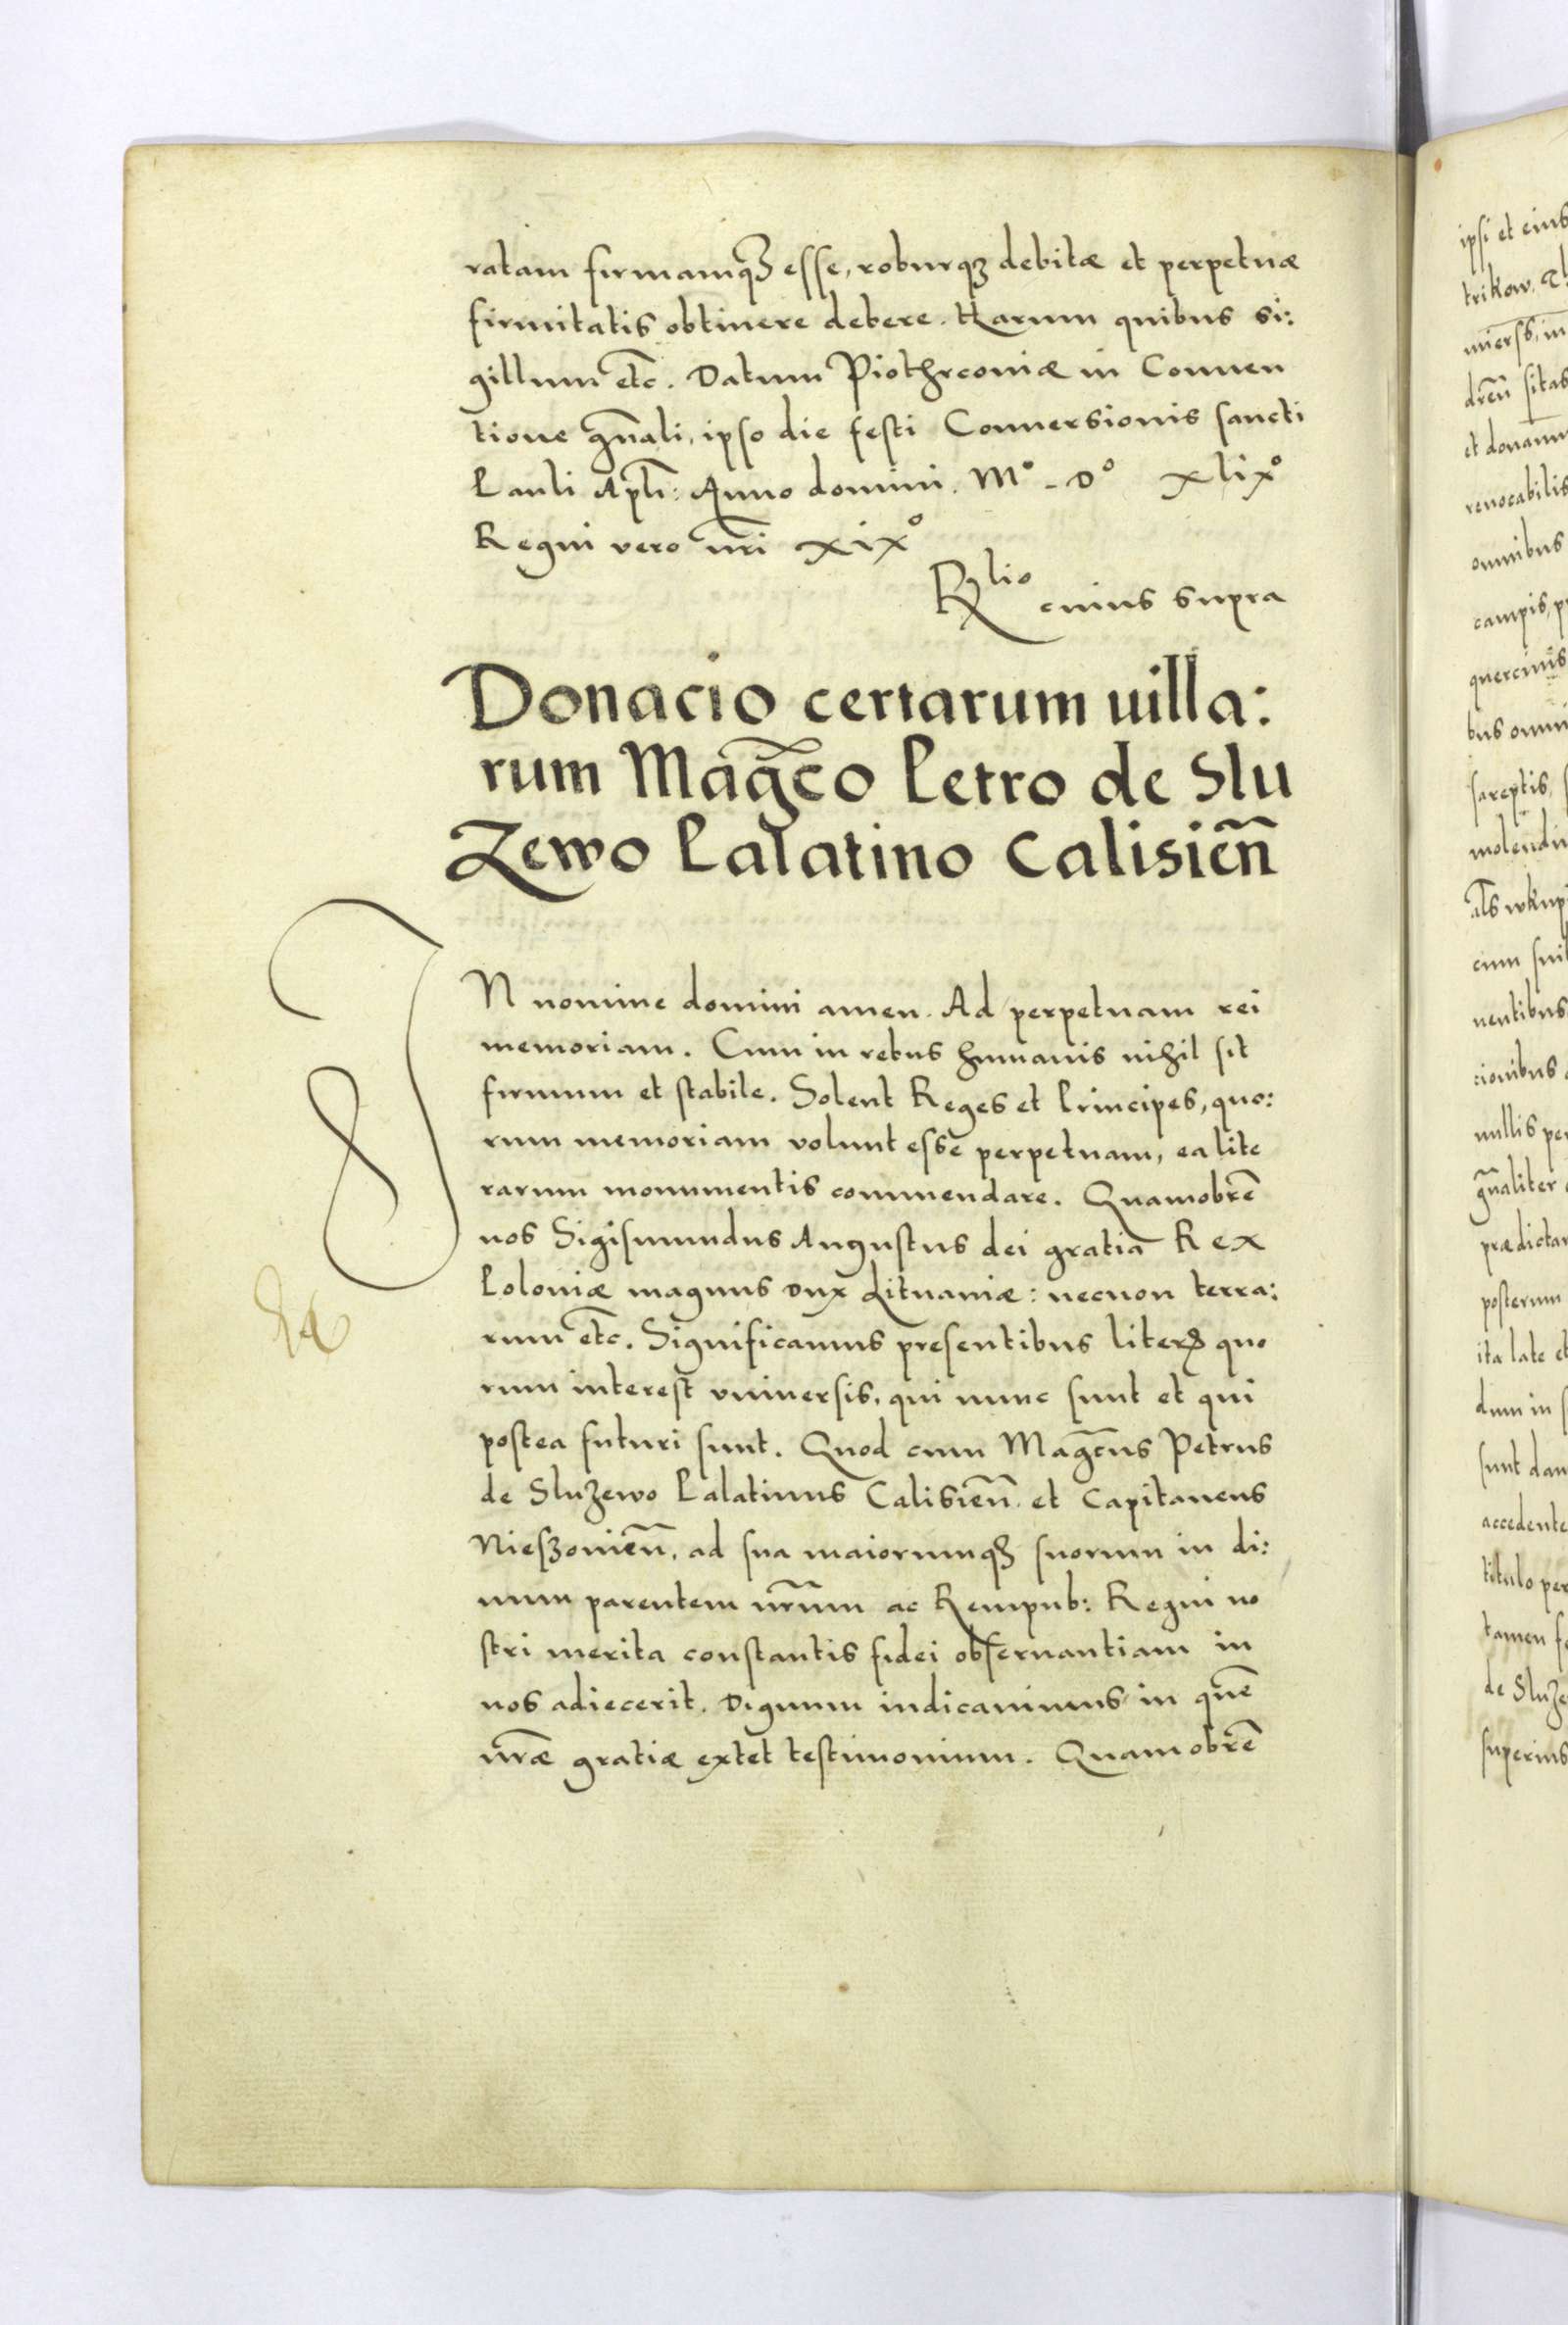 ratam firmamqꝫ esse, roburqꝫ debitæ et perpetuæ
firmitatis obtinere debere. Harum quibus si:
gillum etc̄. Datum Piothrconiæ in Conuen
tione gn̄ali, ipso die festi Conuersionis sancti
Pauli Apl̄i: Anno domini. Mº. Dº xlixº
Regni vero nr̄i xixº
Rlio cuius supra
Donacio certarum uilla:
rum Mag̃co Petro de Slu
Zewo Palatino Calisien̄
IN nomine domini amen. Ad perpetuam rei
memoriam. Cum in rebus humanis nihil sit
firmum et stabile. Solent Reges et Principes, quo:
rum memoriam volunt esse perpetuam, ea lite
rarum monumentis commendare. Quamobrē
nos Sigismundus Augustus dei gratia Rex
Poloniæ magnus Dux Lituaniæ: necnon terra:
rum etc̄. Significamus presentibus literꝭ quo
rum interest vniuersis, qui nunc sunt et qui
postea futuri sunt. Quod cum Mag̃cus Petrus
de Sluzewo Palatinus Calisien̄. et Capitaneus
Nieszouien̄, ad sua maiorumqꝫ suorum in di:
uum parentem nr̄um ac Rempub: Regni no
stri merita constantis fidei obseruantiam in
nos adiecerit. Dignum iudicauimus in quē
nr̄æ gratiæ extet testimonium. Quamobrē
ipsi et eius
trikow.
dren̄ sitas
et donamu
reuocabilis
omnibus
campis, p
quercinis
bus omni
sareptis,
molendin
al̄s wkup
cum suis
nentibus
cionibus
nullis per
gn̄aliter
prædictar
posterum
ita late et
dum in
sunt dan
accedente
titulo per
tamen
de Sluze
superius